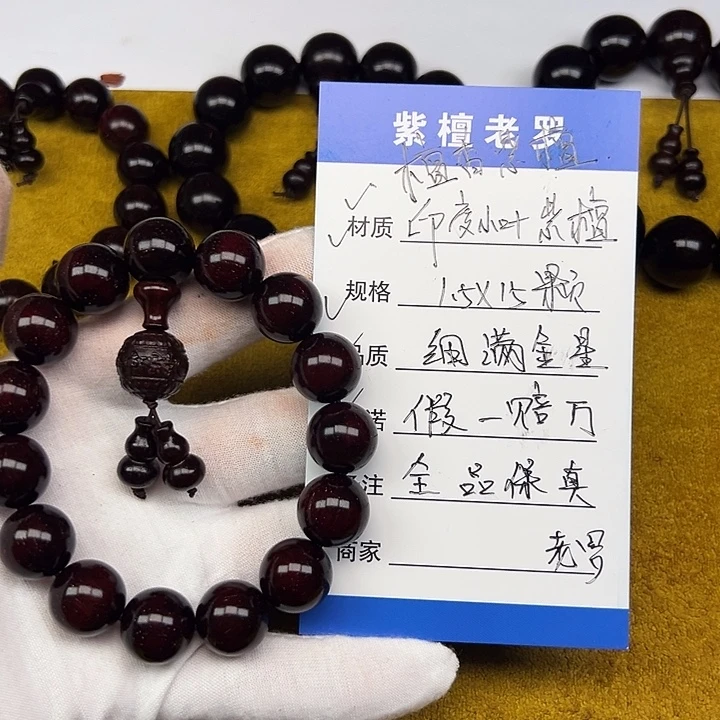 紫檀老罗
檀香紫檀
材质 印度小叶紫檀
规格 1.5X15颗
品质 细满金星
诺 假一赔万
注 全品保真
商家 老罗